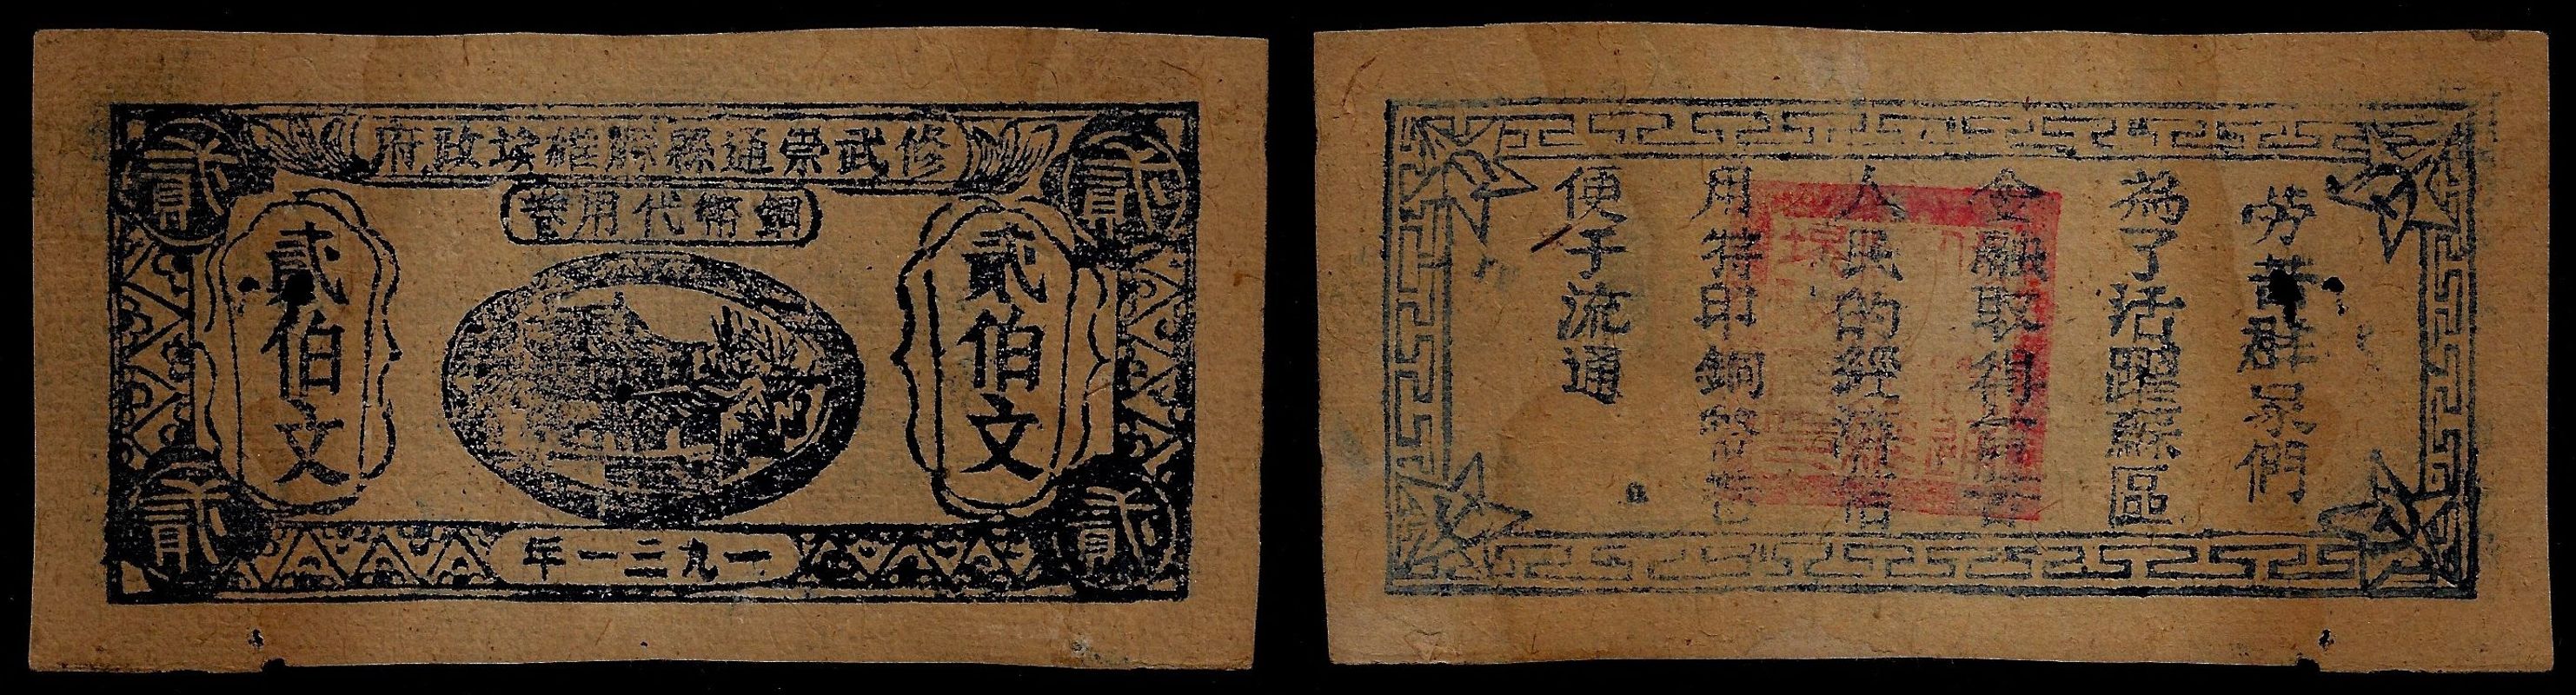 修武崇通縣蘇維埃政府
銅幣代用卷
貳
貳
貳伯文
貳伯文
一九三一年
貳
貳
勞苦群眾們
為了活躍蘇區
金融取得
人民的經濟信
用特印銅幣
便于流通